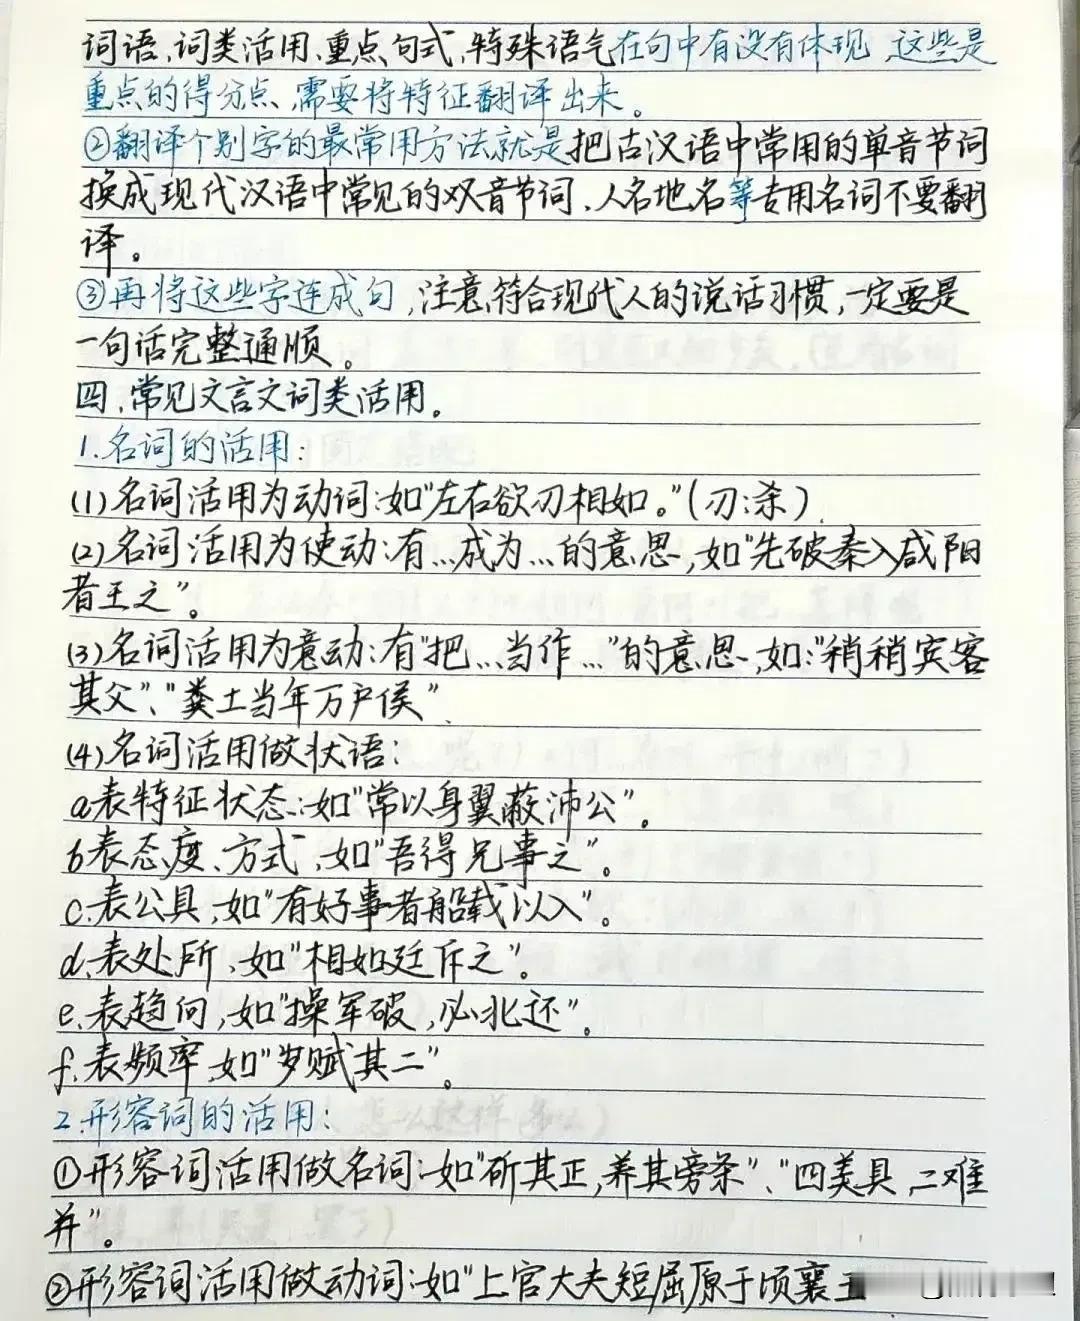 词语、词类活用、重点句式、特殊语气在句中有没有体现,这些是
重点的得分点,需要将特征翻译出来。
②翻译个别字的最常用方法就是把古汉语中常用的单音节词
换成现代汉语中常见的双音节词、人名地名等专用名词不要翻
译。
③再将这些字连成句,注意符合现代人的说话习惯,一定要是
一句话完整通顺。
四、常见文言文词类活用。
1.名词的活用:
(1)名词活用为动词:如"左右欲刃相如。"(刃:杀)
(2)名词活用为使动:有…成为…的意思,如"先破秦入咸阳
者王之"。
(3)名词活用为意动:有"把…当作…"的意思,如:"稍稍宾客
其父"、"粪土当年万户侯"
(4)名词活用做状语:
a.表特征状态:如"常以身翼蔽沛公"。
b.表态度、方式,如"吾得兄事之"。
c.表公具,如"有好事者船载以入"。
d.表处所,如"相如廷斥之"。
e.表趋向,如"操军破,必北还"。
f.表频率,如"岁赋其二"。
2.形容词的活用:
①形容词活用做名词:如"斫其正,养其旁条"、"四美具,二难
并"。
②形容词活用做动词:如"上官大夫短屈原于顷襄王